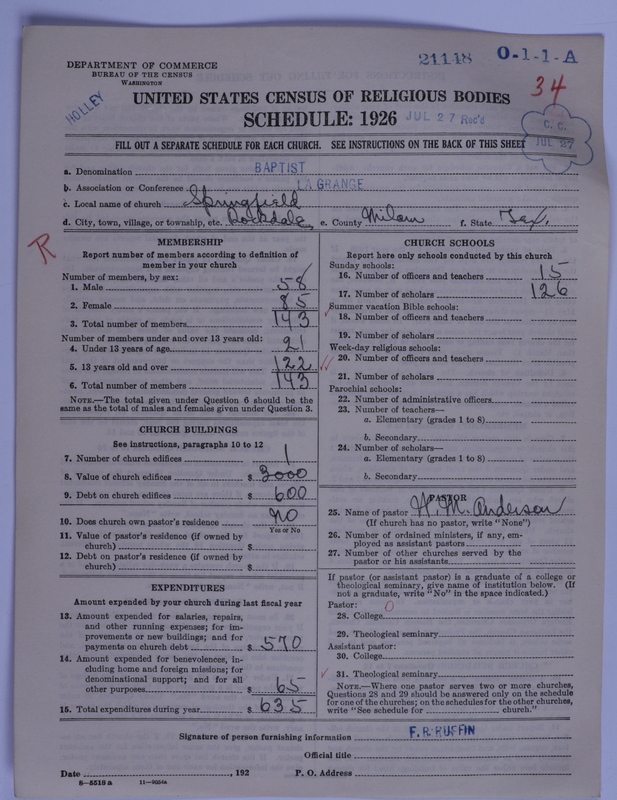 21118 O-1-1-A
DEPARTMENT OF COMMERCE
BUREAU OF THE CENSUS
WASHINGTON
34
HOLLEY
UNITED STATES CENSUS OF RELIGIOUS BODIES
SCHEDULE: 1926 JUL 27 Rec'd
C. C.
JUL 27
FILL OUT A SEPARATE SCHEDULE FOR EACH CHURCH. SEE INSTRUCTIONS ON THE BACK OF THIS SHEET
a. Denomination BAPTIST
b. Association or Conference LA GRANGE
c. Local name of church Springfield
d. City, town, village, or township, etc. Rockdale, e. County Milam f. State Tex.
R
MEMBERSHIP
Report number of members according to definition of
member in your church
Number of members, by sex:
1. Male 58
2. Female 85
3. Total number of members 143
Number of members under and over 13 years old:
4. Under 13 years of age 21
5. 13 years old and over 122
6. Total number of members 143
NOTE.—The total given under Question 6 should be the
same as the total of males and females given under Question 3.
CHURCH BUILDINGS
See instructions, paragraphs 10 to 12
7. Number of church edifices 1
8. Value of church edifices $ 3000
9. Debt on church edifices $ 600
10. Does church own pastor's residence no
Yes or No
11. Value of pastor's residence (if owned by
church) $
12. Debt on pastor's residence (if owned by
church) $
EXPENDITURES
Amount expended by your church during last fiscal year
13. Amount expended for salaries, repairs,
and other running expenses; for im-
provements or new buildings; and for
payments on church debt $ 570
14. Amount expended for benevolences, in-
cluding home and foreign missions; for
denominational support; and for all
other purposes $ 65
15. Total expenditures during year $ 635
CHURCH SCHOOLS
Report here only schools conducted by this church
Sunday schools:
16. Number of officers and teachers 15
17. Number of scholars 126
Summer vacation Bible schools:
18. Number of officers and teachers
19. Number of scholars
Week-day religious schools:
20. Number of officers and teachers
21. Number of scholars
Parochial schools:
22. Number of administrative officers
23. Number of teachers—
a. Elementary (grades 1 to 8)
b. Secondary
24. Number of scholars—
a. Elementary (grades 1 to 8)
b. Secondary
PASTOR
25. Name of pastor H. M. Anderson
(If church has no pastor, write "None")
26. Number of ordained ministers, if any, em-
ployed as assistant pastors
27. Number of other churches served by the
pastor or his assistants
If pastor (or assistant pastor) is a graduate of a college or
theological seminary, give name of institution below. (If
not a graduate, write "No" in the space indicated.)
Pastor: 0
28. College
29. Theological seminary
Assistant pastor:
30. College
31. Theological seminary
NOTE.—Where one pastor serves two or more churches,
Questions 28 and 29 should be answered only on the schedule
for one of the churches; on the schedules for the other churches,
write "See schedule for church."
Signature of person furnishing information F. R. RUFFIN
Official title
Date , 192 P. O. Address
8—5518 a 11—9054a